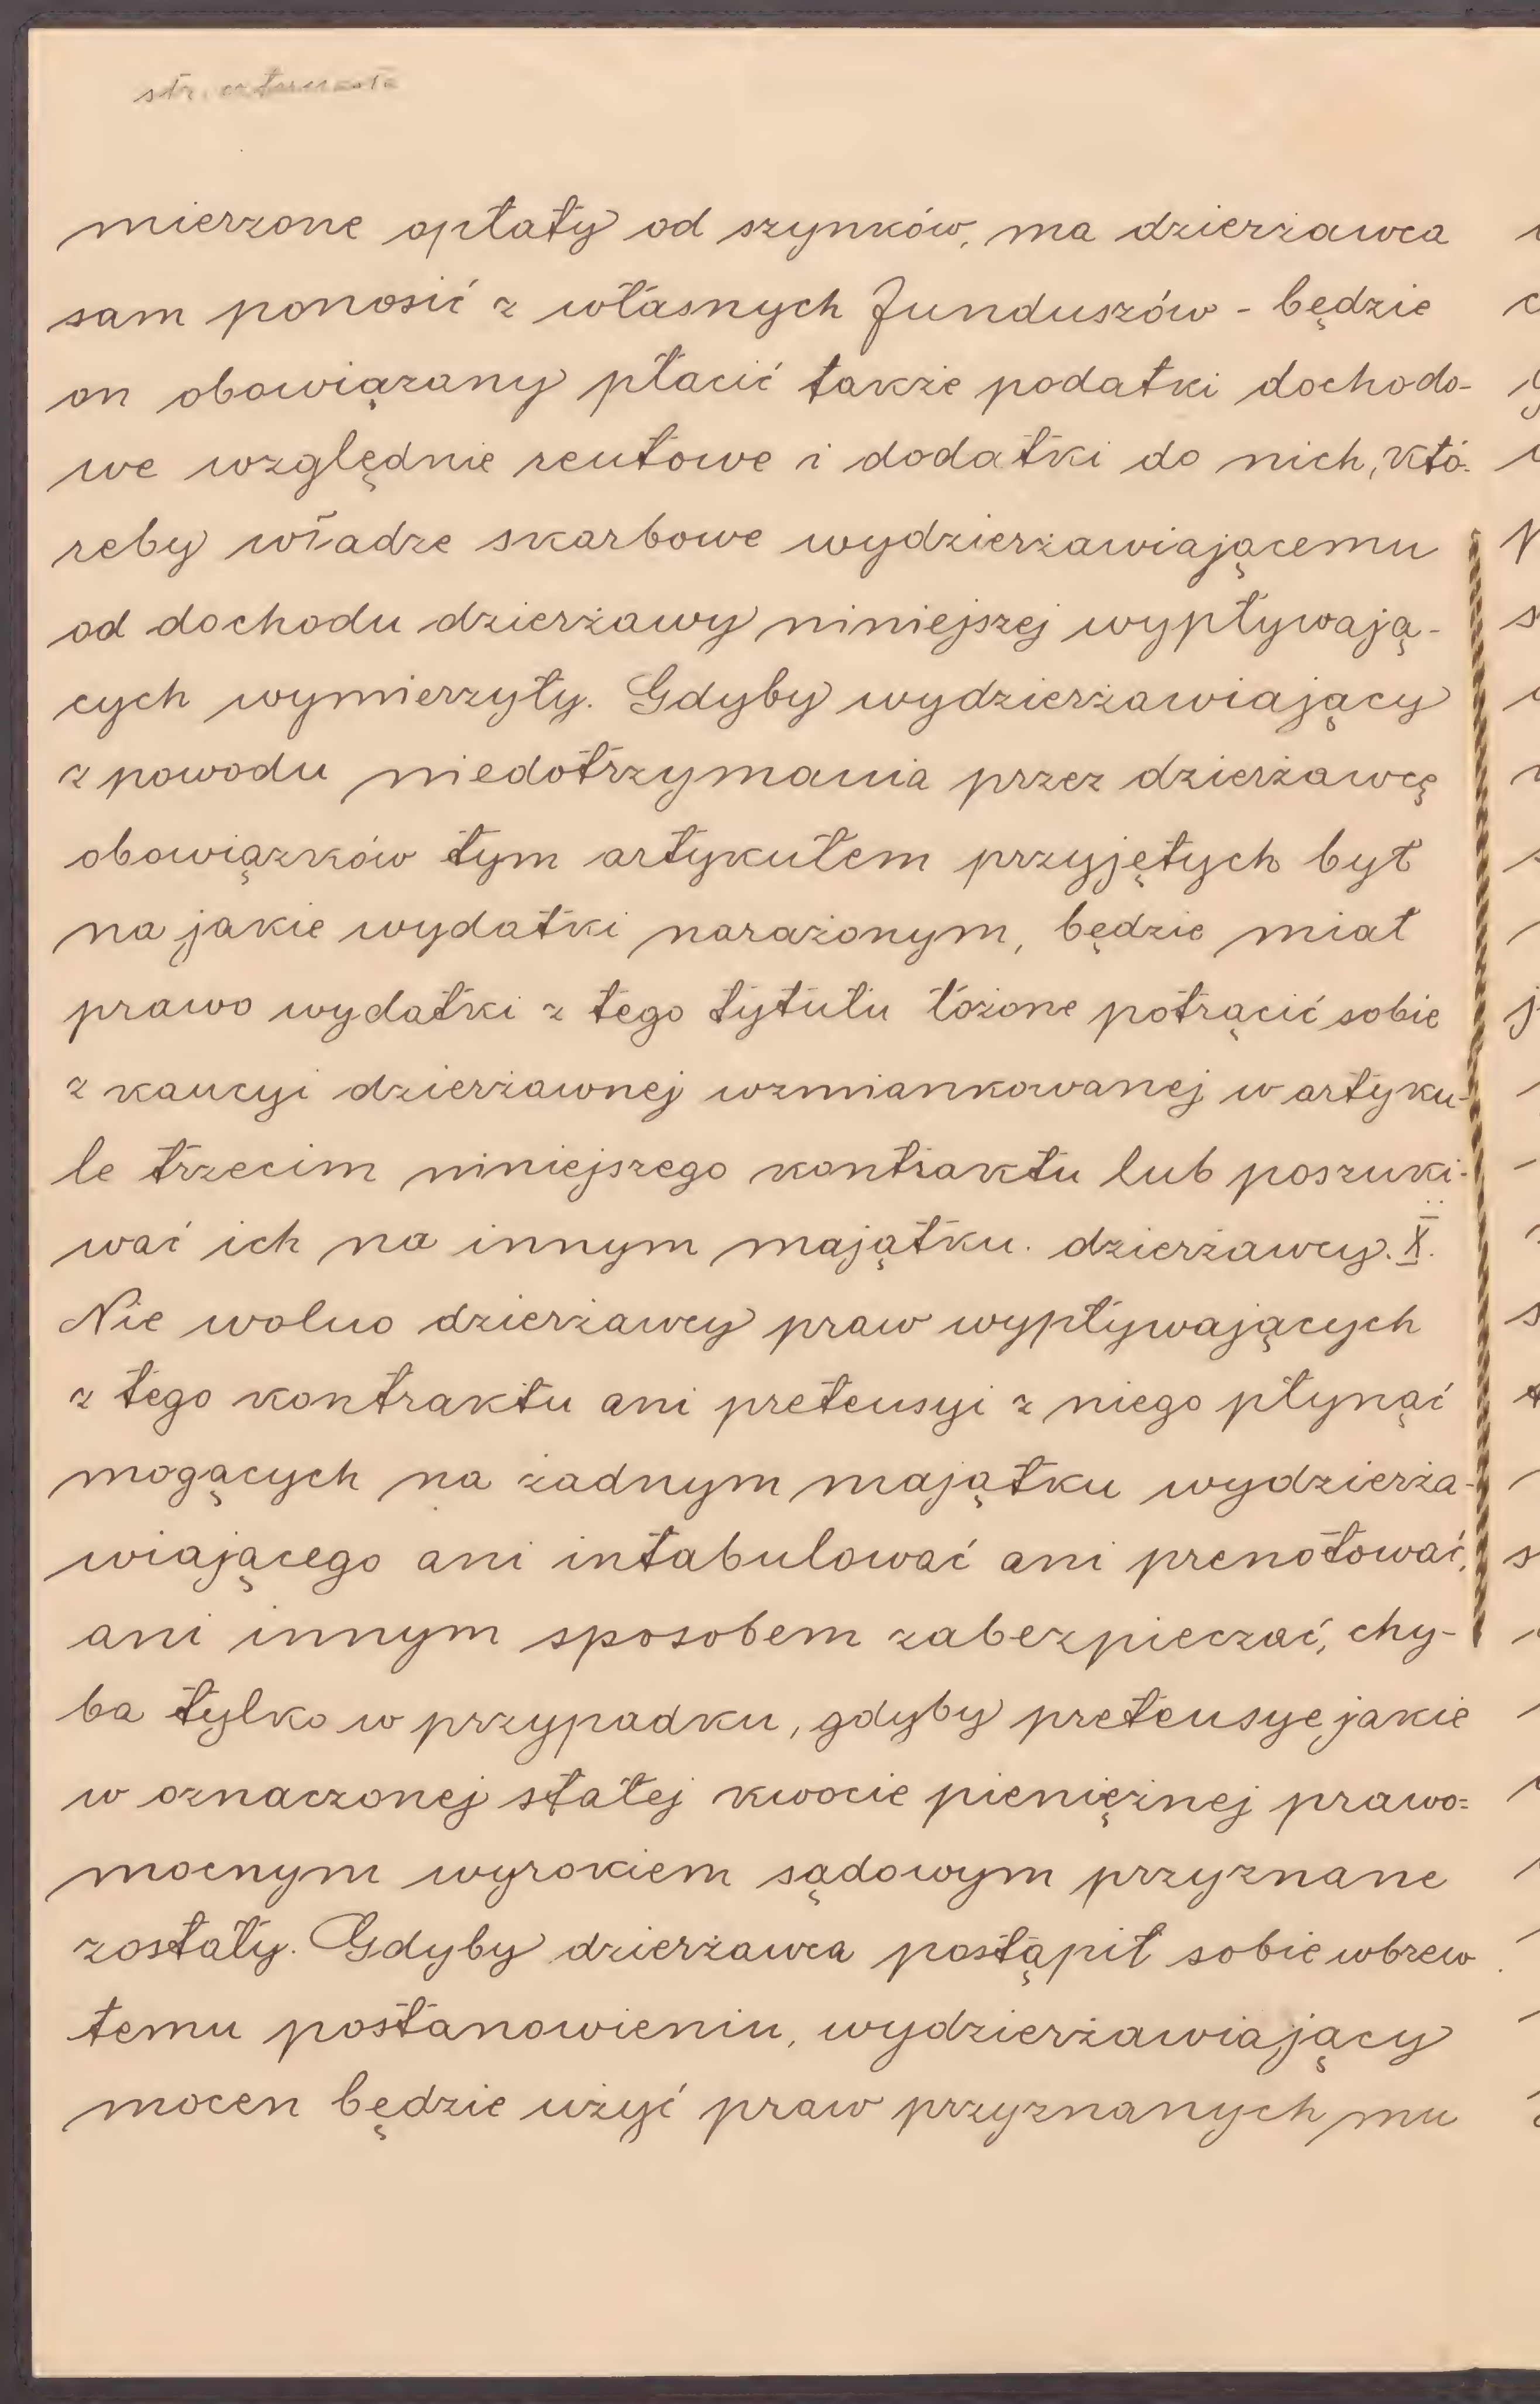 str. czternasta
mierzone opłaty od szynków, ma dzierżawca
sam ponosić z własnych funduszów - będzie
on obowiązany płacić także podatki dochodo-
we względnie rentowe i dodatki do nich, któ-
reby władze skarbowe wydzierżawiającemu
od dochodu dzierżawy niniejszej wypływają-
cych wymierzyły. Gdyby wydzierżawiający
z powodu niedotrzymania przez dzierżawcę
obowiązków tym artykułem przyjętych był
na jakie wydatki narażonym, będzie miał
prawo wydatki z tego tytułu łożone potrącić sobie
z kaucyi dzierżawnej wzmiankowanej w artyku-
le trzecim niniejszego kontraktu lub poszuki-
wać ich na innym majątku dzierżawcy. X.
Nie wolno dzierżawcy praw wypływających
z tego kontraktu ani pretensyi z niego płynąć
mogących na żadnym majątku wydzierża-
wiającego ani intabulować ani prenotować,
ani innym sposobem zabezpieczać, chy-
ba tylko w przypadku, gdyby pretensye jakie
w oznaczonej stałej kwocie pieniężnej prawo=
mocnym wyrokiem sądowym przyznane
zostały. Gdyby dzierżawca postąpił sobie wbrew
temu postanowieniu, wydzierżawiający
mocen będzie użyć praw przyznanych mu